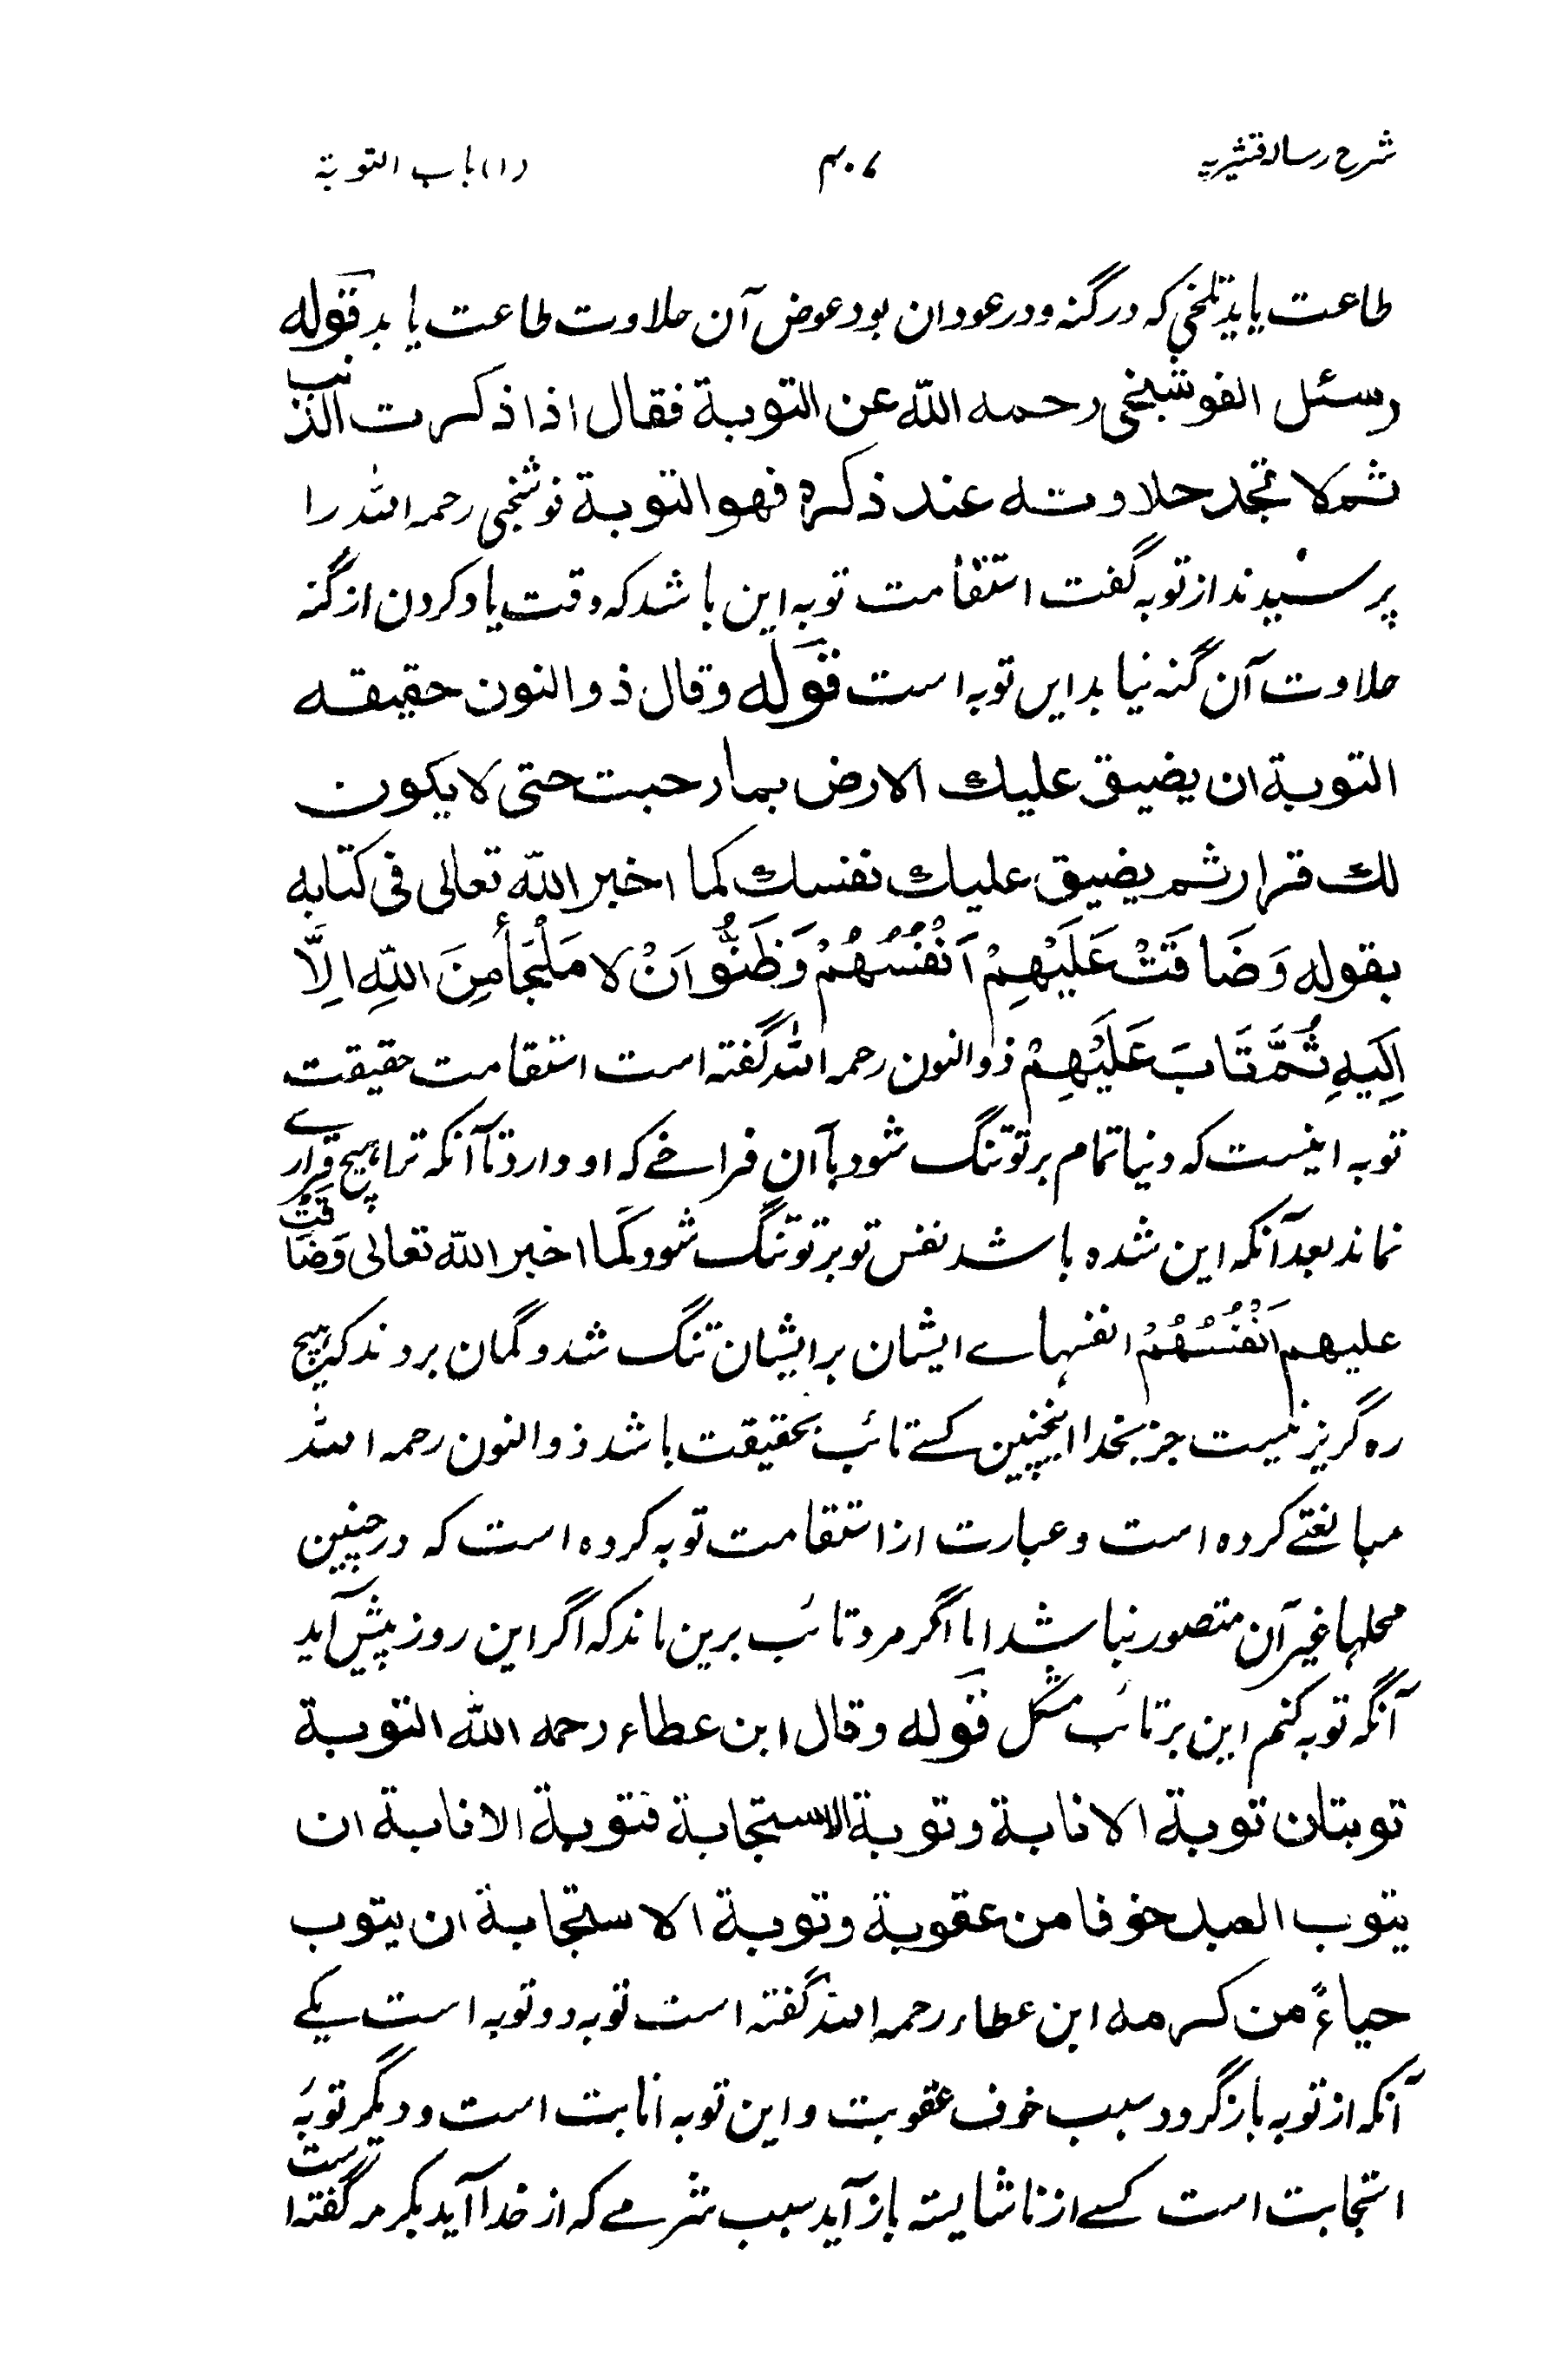 شرح رساله قشیریه
۴۰۷
(۱) باب التوبة
طاعت یابد تلخی که در گنه و در عود ان بود عوض آن حلاوت طاعت یابد قوله
وسئل الفوشنجی رحمه الله عن التوبة فقال اذا ذکرت الذنب
ثم لا تجد حلاوته عند ذکره فهو التوبة فوشنجی رحمه الله را
پرسیدند از توبه گفت استقامت توبه این باشد که وقت یاد کردن از گنه
حلاوت آن گنه نیابد ایں توبه است قوله وقال ذو النون حقیقه
التوبة ان یضیق علیك الارض بما رحبت حتی لا یکون
لك قرار ثم یضیق علیك نفسك کما اخبر الله تعالی فی کتابه
بقوله وَضَاقَتْ عَلَيْهِمْ اَنْفُسُهُمْ وَظَنُّوا اَنْ لا مَلْجَأَ مِنَ اللهِ اِلَّا
اِلَيْهِ ثُمَّ تَابَ عَلَيْهِمْ ذو النون رحمه الله گفته است استقامت حقیقت
توبه اینست که دنیا تمام بر تو تنگ شود بآن فراخے که او دارد تا آنکه ترا هیچ قرارے
نماند بعد آنکه این شده باشد نفس تو بر تو تنگ شود کما اخبر الله تعالی وَضَاقَتْ
علیهم اَنْفُسُهُمْ انفسهاے ایشان بر ایشان تنگ شد و گمان بردند که هیچ
ره گریز نیست جز بخدا اینچنین کسے تائب بحقیقت باشد ذو النون رحمه الله
مبالغتے کرده است و عبارت از استقامت توبه کرده است که در چنین
محلها غیر آن متصور نباشد اما اگر مرد تائب برین ماند که اگر این روز پیش آید
آنگه توبه کنم این بر تائب مشکل قوله وقال ابن عطاء رحمه الله التوبة
توبتان توبة الانابة وتوبة الاستجابة فتوبة الانابة ان
یتوب العبد خوفا من عقوبة وتوبة الاستجابة ان یتوب
حیاءً من کرمه ابن عطاء رحمه الله گفته است توبه دو توبه است یکے
آنکه از توبه بازگردد سبب خوف عقوبت و این توبه انابت است و دیگر توبهٔ
استجابت است کسے از ناشایسته باز آید سبب شرمے که از خدا آید بکرمه گفته است